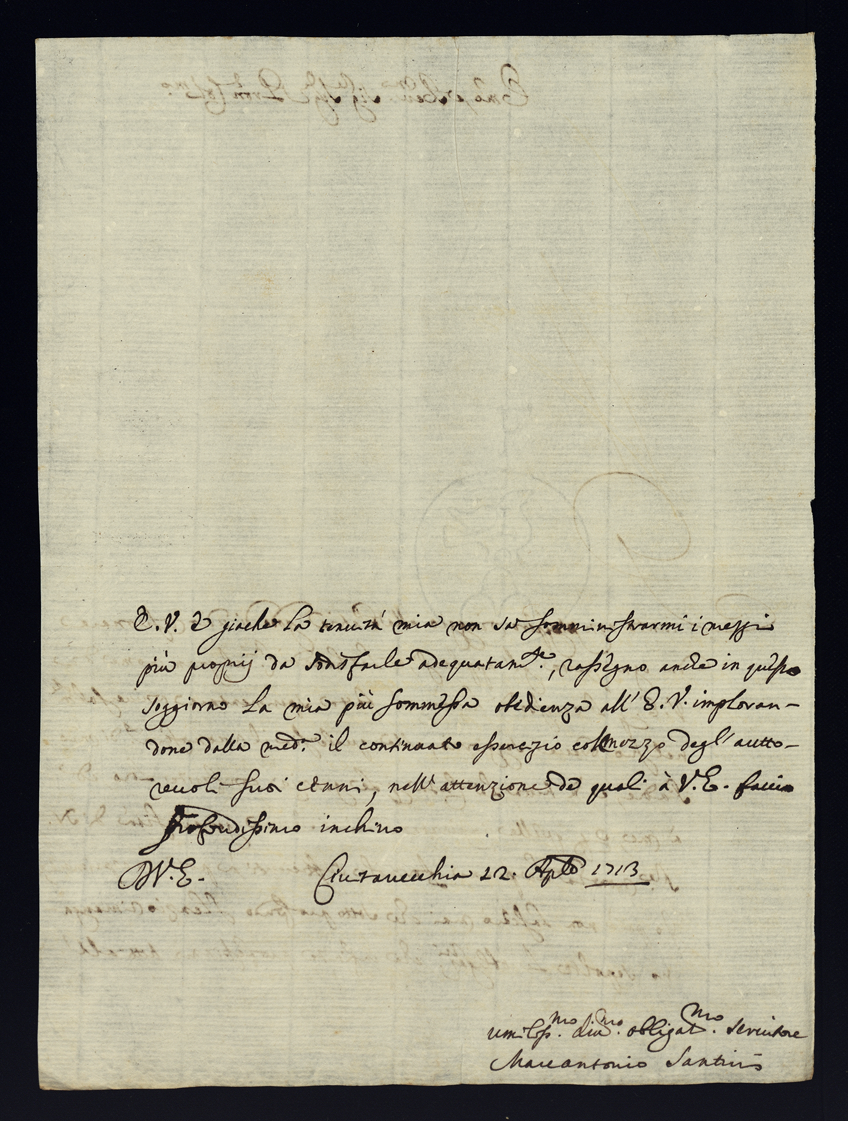 E. V. e giache la tenuità mia non sa somministrarmi i mezzi
più proprij da sodisfarle adequatam.te, rassegno anche in questo
soggiorno la mia più sommessa obedienza all' E. V. imploran-
done dalla med.a il continuato esercizio col mezzo degl' autto-
revoli suoi cenni, nell' attenzione de quali à V. E. faccio
profondissimo inchino
D V. E. Ciuitauecchia 22. Aple 1713
umiliss.mo diu.mo obligat.mo seruitore
Marcantonio Santini